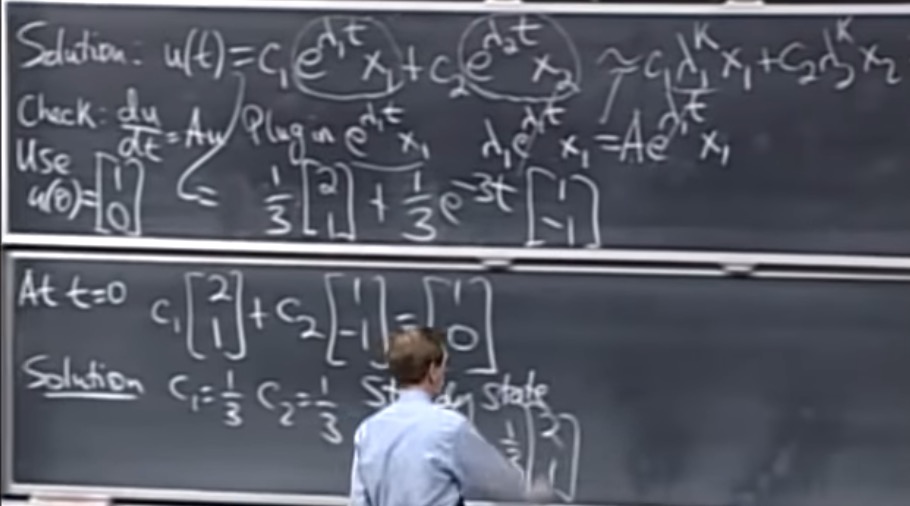 Solution: u(t) = c₁ e^{λ₁t} x₁ + c₂ e^{λ₂t} x₂ ~ c₁ λ₁^k x₁ + c₂ λ₂^k x₂
Check: du/dt = Au Plug in e^{λ₁t} x₁ λ₁ e^{λ₁t} x₁ = A e^{λ₁t} x₁
Use
u(0) = [1 0] = 1/3 [2 1] + 1/3 e^{-3t} [1 -1]
At t=0 c₁ [2 1] + c₂ [1 -1] = [1 0]
Solution c₁ = 1/3 c₂ = 1/3 state
[2 1]